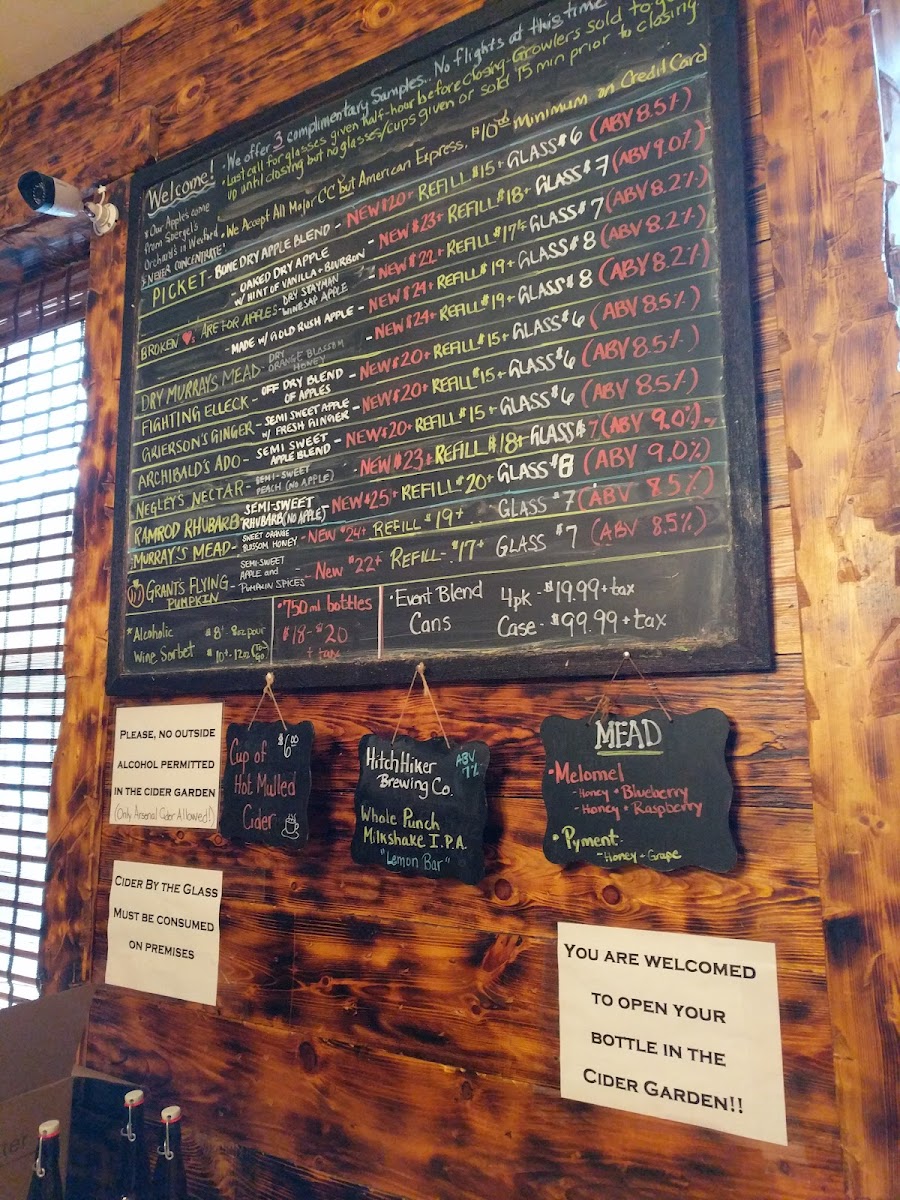 Welcome!
• We offer 3 complimentary samples.. No flights at this time
• Last call for glasses given half-hour before closing - Growlers sold to-go
up until closing but no glasses/cups given or sold 15 min prior to closing.
• We Accept All Major CC but American Express, $10.00 Minimum on Credit Card
* Our Apples come
from Soergel's
Orchards in Wexford
& NEVER CONCENTRATE!
PICKET - BONE DRY APPLE BLEND - NEW $20+ REFILL $15+ GLASS $6 (ABV 8.5%)
OAKED DRY APPLE
W/ HINT OF VANILLA + BOURBON - NEW $23+ REFILL $18+ GLASS $7 (ABV 9.0%)
BROKEN ♥: ARE FOR APPLES - DRY STAYMAN
WINESAP APPLE - NEW $22+ REFILL $17+ GLASS $7 (ABV 8.2%)
- MADE W/ GOLD RUSH APPLE - NEW $24+ REFILL $19+ GLASS $8 (ABV 8.2%)
DRY MURRAY'S MEAD - DRY
ORANGE BLOSSOM
HONEY - NEW $24+ REFILL $19+ GLASS $8 (ABV 8.2%)
FIGHTING ELLECK - OFF DRY BLEND
OF APPLES - NEW $20+ REFILL $15+ GLASS $6 (ABV 8.5%)
GRIERSON'S GINGER - SEMI SWEET APPLE
W/ FRESH GINGER - NEW $20+ REFILL $15+ GLASS $6 (ABV 8.5%)
ARCHIBALD'S ADO - SEMI SWEET
APPLE BLEND - NEW $20+ REFILL $15+ GLASS $6 (ABV 8.5%)
NEGLEY'S NECTAR - SEMI-SWEET
PEACH (NO APPLE) - NEW $23+ REFILL $18+ GLASS $7 (ABV 9.0%)
RAMROD RHUBARB - SEMI-SWEET
RHUBARB (NO APPLE) NEW $25+ REFILL $20+ GLASS $8 (ABV 9.0%)
MURRAY'S MEAD - SWEET ORANGE
BLOSSOM HONEY - NEW $24+ REFILL $19+ GLASS $7 (ABV 8.5%)
GRANT'S FLYING
PUMPKIN - SEMI-SWEET
APPLE and
PUMPKIN SPICES - New $22+ REFILL - $17+ GLASS $7 (ABV 8.5%)
* Alcoholic
Wine Sorbet
$8+ 8oz pour
$10+ - 12oz (to-go)
• 750 ml bottles
$18 - $20
+ tax
• Event Blend
Cans
4pk - $19.99 + tax
Case - $99.99 + tax
PLEASE, NO OUTSIDE
ALCOHOL PERMITTED
IN THE CIDER GARDEN
(Only Arsenal Cider Allowed!)
$6.00
Cup of
Hot Mulled
Cider
HitchHiker
Brewing Co.
ABV
7%
Whole Punch
Milkshake I.P.A.
"Lemon Bar"
MEAD
• Melomel
- Honey + Blueberry
- Honey + Raspberry
• Pyment
- Honey + Grape
CIDER BY THE GLASS
MUST BE CONSUMED
ON PREMISES
YOU ARE WELCOMED
TO OPEN YOUR
BOTTLE IN THE
CIDER GARDEN!!